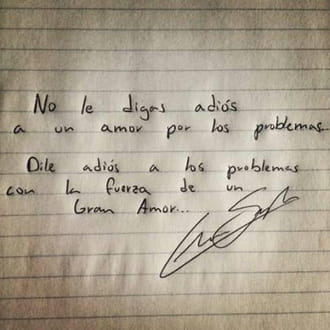 No le digas adiós
a un amor por los problemas..
Dile adiós a los problemas
con la fuerza de un
Gran Amor...